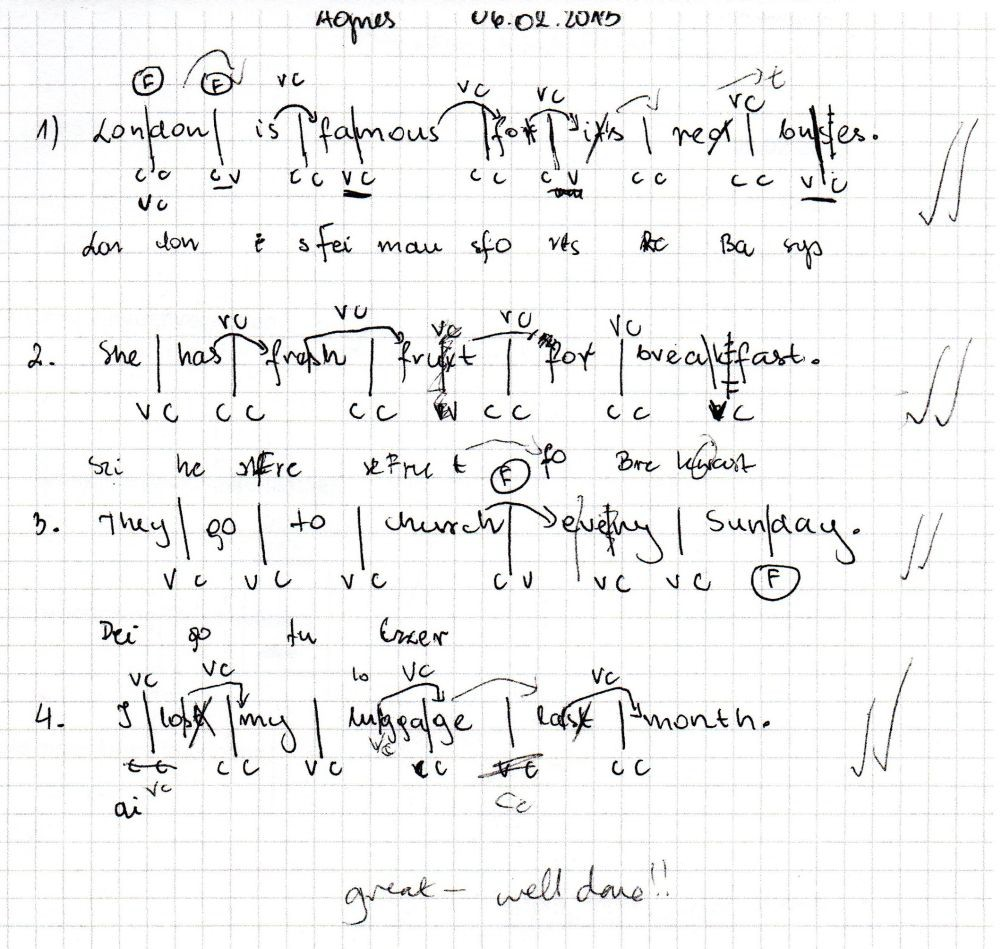 Agnes 06.02.2015
F F VC VC VC VC t
1) London is famous for its red buses.
CC CV CC VC CC CV CC CC VC
VC
Lon don i sfei mau sfo rts Ba sys
VC VC VC VC VC
2. She has fresh fruit for breakfast.
VC CC CC CC CC VC
szi he fo
F
3. They go to church every Sunday.
VC VC VC CV VC VC F
Dei go tu
VC VC lo VC VC
4. I lost my luggage last month.
CC CC VC VC CC VC CC
VC Cc
ai
great - well done!!